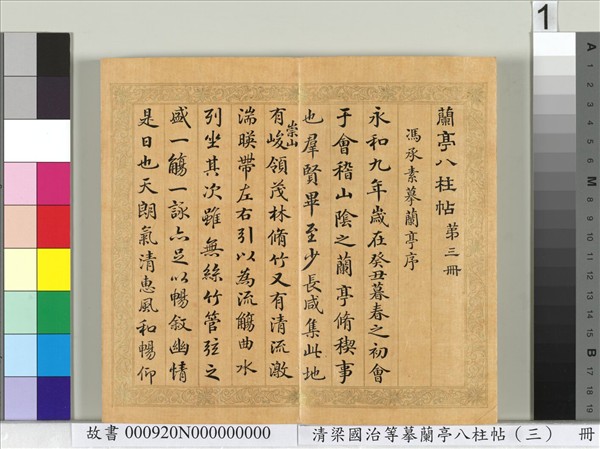 蘭亭八柱帖 第三冊
馮承素摹蘭亭序
永和九年歲在癸丑暮春之初會
于會稽山陰之蘭亭脩稧事
也羣賢畢至少長咸集此地
有崇山峻領茂林脩竹又有清流激
湍暎帶左右引以為流觴曲水
列坐其次雖無絲竹管弦之
盛一觴一詠亦足以暢敘幽情
是日也天朗氣清惠風和暢仰
1
A
1
2
3
4
5
6
M
8
9
10
11
12
13
14
15
B
17
18
19
故書 000920N000000000
清梁國治等摹蘭亭八柱帖（三） 冊